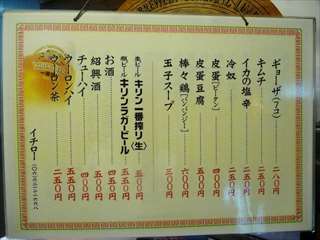 ギョーザ(7コ) 二八〇円
キムチ 二五〇円
イカの塩辛 二五〇円
冷奴 二五〇円
皮蛋(ピータン) 四〇〇円
皮蛋豆腐 五五〇円
棒々鶏(バンバンジー) 六〇〇円
玉子スープ 三五〇円
生ビール キリン一番搾り〈生〉 五五〇円
瓶ビール キリンラガービール 五五〇円
お酒 四五〇円
紹興酒 五五〇円
チューハイ 四〇〇円
ウーロンハイ 五五〇円
ウーロン茶 二五〇円
イチロー